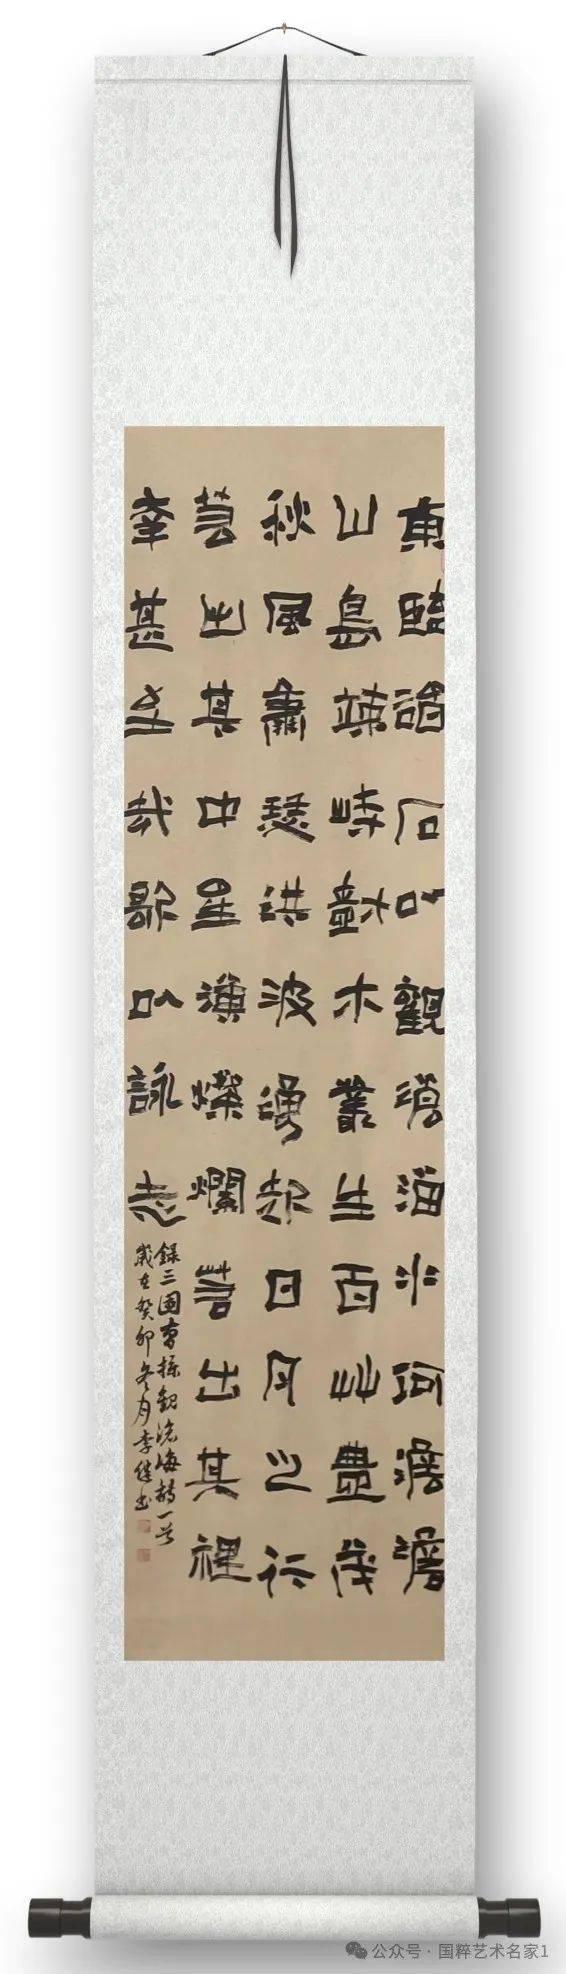 東臨碣石以觀滄海水何澹澹
山島竦峙樹木叢生百艸豐茂
秋風蕭瑟洪波湧起日月之行
若出其中星漢燦爛若出其裡
幸甚至哉歌以詠志
錄三國曹操觀滄海詩一首
歲在癸卯冬月李书
公众号 · 国粹艺术名家1